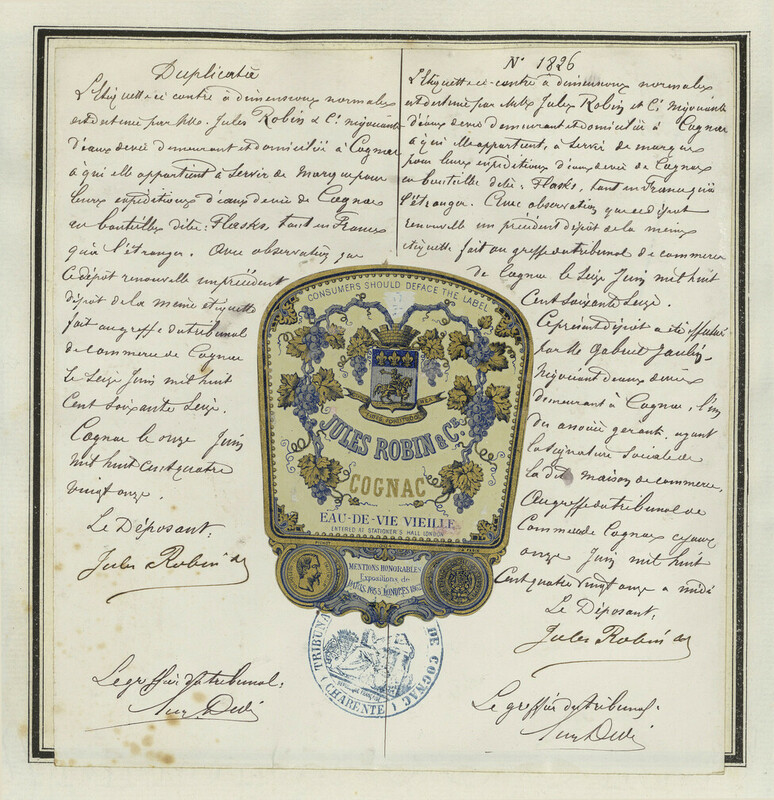 Duplicatie
L'Etiquette ci contre à dimensions normales
est destinée par MM. Jules Robin & Cie négociants
d'eaux de vie demeurant et domiciliés à Cognac
à qui elle appartient à servir de marque pour
leurs expéditions d'eaux de vie de Cognac
en bouteilles dites: Flasks, tant en France
qu'à l'étranger. Avec observation que
ce dépôt renouvelle un précédent
dépôt de la même étiquette
fait au greffe du tribunal
de commerce de Cognac
le Seize Juin mil huit
Cent soixante Seize.
Cognac le onze Juin
mil huit Cent quatre
vingt onze.
Le Déposant.
Jules Robin
Le greffier du tribunal.
N° 1826
L'Etiquette ci-contre à dimensions normales
est destinée par MM. Jules Robin et Cie négociants
d'eaux de vie demeurant et domiciliés à Cognac
à qui elle appartient, à servir de marque
pour leurs expéditions d'eaux de vie de Cognac
en bouteilles dites: Flasks, tant en France qu'à
l'étranger. Avec observation que ce dépôt
renouvelle un précédent dépôt de la même
étiquette fait au greffe du tribunal de commerce
de Cognac le Seize Juin mil huit
Cent soixante Seize.
Ce présent dépôt a été effectué
par Mr Gabriel
négociant d'eaux de vie
demeurant à Cognac, l'un
des associés gérants, ayant
la signature sociale de
la dite maison de commerce,
Au greffe du tribunal de
Commerce de Cognac ce jour
onze Juin mil huit
Cent quatre vingt onze à midi
Le Déposant,
Jules Robin
Le greffier du tribunal.
CONSUMERS SHOULD DEFACE THE LABEL
JULES ROBIN & CIE
COGNAC
EAU-DE-VIE VIEILLE
ENTERED AT STATIONER'S HALL LONDON
MENTIONS HONORABLES
Expositions de
PARIS 1855 LONDRES 1862
TRIBUNAL DE COGNAC
(CHARENTE)